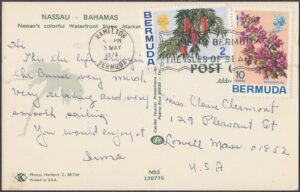 NASSAU - BAHAMAS
Nassau's colorful Waterfront Straw Market
HAMILTON
1 - PM
3 MAY
1974
BERMUDA
BERMUDA
2
10
BERMUDA
BERMUDA
THE ISLES OF
POST
Hi!
This the life
the Cunar very much,
Very relaxing and very
smooth sailing.
You would enjoy it
Miss Claire Clermont
129 Pleasant St
Lowell Mass. 01852
U.S.A
Photo: Herbert C. Miller
Printed in U.S.A.
NS3
130770